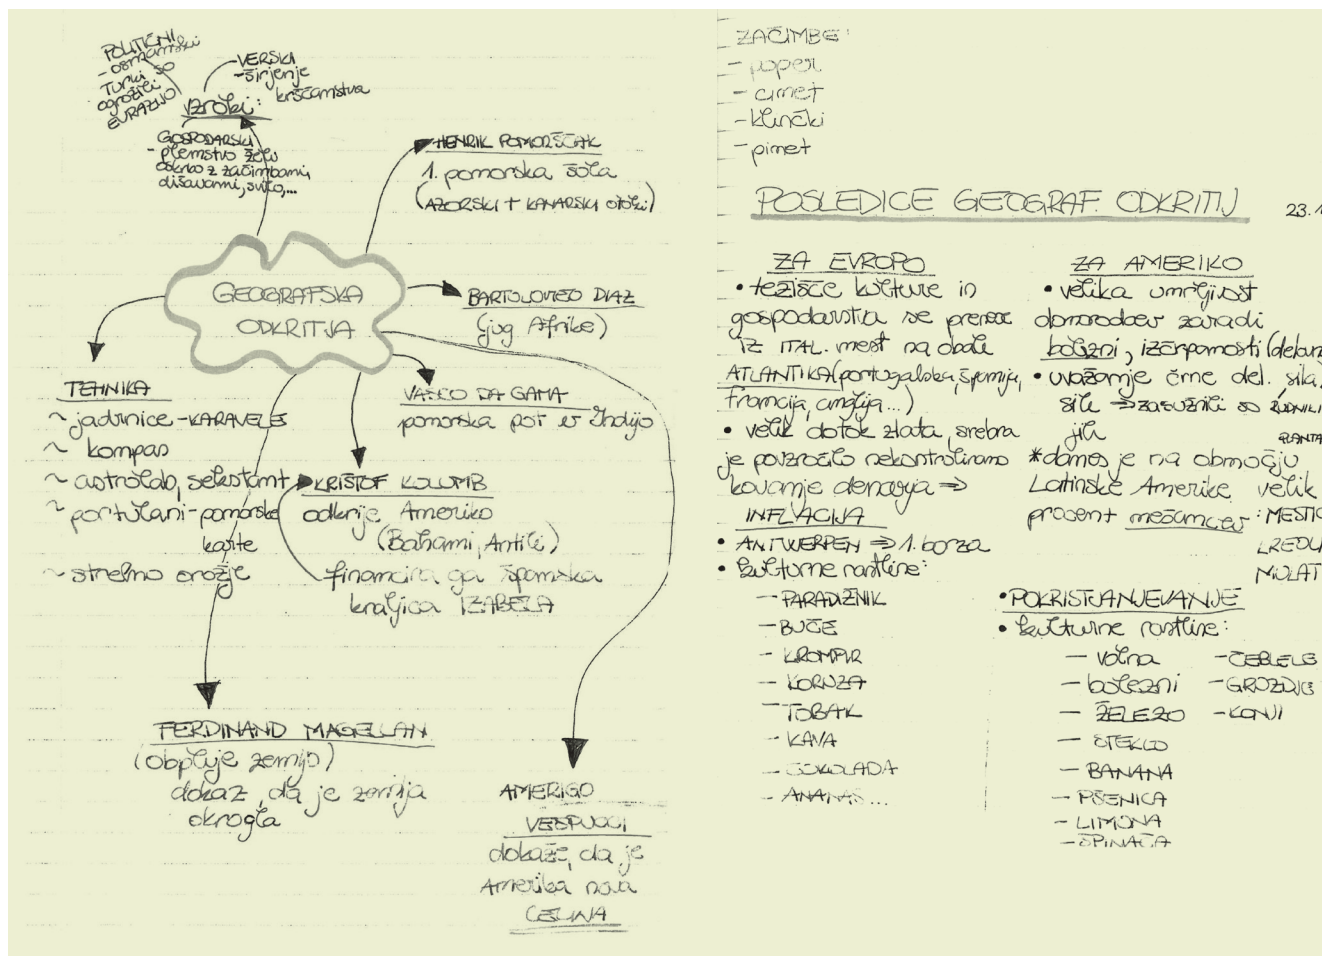 POLITIČNI
- osmanski
Turki so
ogrozili
EVRAZIJO
VERSKI
- širjenje
krščanstva
vzroki:
GOSPODARSKI
- plemstvo želi
oskrbo z začimbami,
dišavami, svilo,...
HENRIK POMORŠČAK
1. pomorska šola
(AZORSKI + KANARSKI otoki)
GEOGRAFSKA
ODKRITJA
BARTOLOMEO DIAZ
(jug Afrike)
VASCO DA GAMA
pomorska pot v Indijo
TEHNIKA
~ jadrnice - KARAVELE
~ kompas
~ astrolab, sekstant
~ portulani - pomorske
karte
~ strelno orožje
KRIŠTOF KOLUMB
odkrije Ameriko
(Bahami, Antili)
financira ga španska
kraljica IZABELA
FERDINAND MAGELLAN
(obpluje zemljo)
dokaz, da je zemlja
okrogla
AMERIGO
VESPUCCI
dokaže, da je
Amerika nova
CELINA
ZAČIMBE:
- poper
- cimet
- klinčki
- piment
POSLEDICE GEOGRAF. ODKRITIJ
23.1
ZA EVROPO
• težišče kulture in
gospodarstva se prenese
iz ITAL. mest na obale
ATLANTIKA (portugalska, španija,
francija, anglija...)
• velik dotok zlata, srebra
je povzročilo nekontrolirano
kovanje denarja ⇒
INFLACIJA
• ANTWERPEN ⇒ 1. borza
• kulturne rastline:
- PARADIŽNIK
- BUČE
- KROMPIR
- KORUZA
- TOBAK
- KAVA
- ČOKOLADA
- ANANAS...
ZA AMERIKO
• velika umrljivost
domorodcev zaradi
bolezni, izčrpanosti (delovna
sila)
• uvažanje črne del.
sile ⇒ zasužnili so RUDNIKI
jih PLANTA
* danes je na območju
Latinske Amerike velik
procent mešancev: MESTIC
KREOLI
MULAT
• POKRISTJANJEVANJE
• kulturne rastline:
- volna
- bolezni
- ŽELEZO
- STEKLO
- BANANA
- PŠENICA
- LIMONA
- ŠPINAČA
- ČEBELE
- GROZDJE
- KONJI